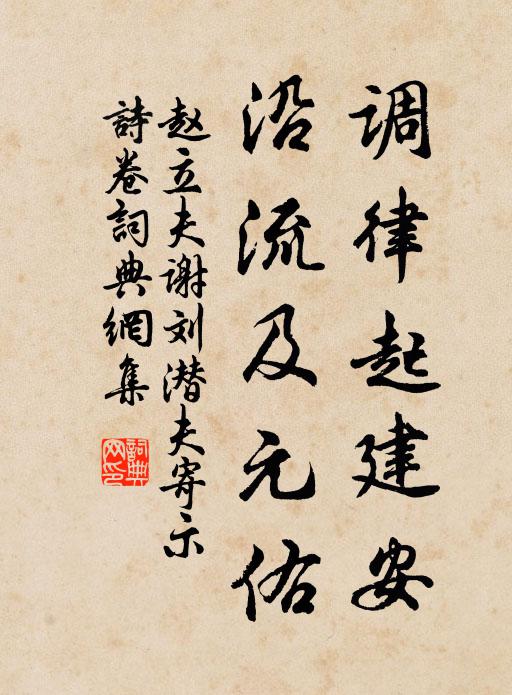 调律起建安
沿流及元佑
赵立夫谢刘潜夫寄示
詩卷詞典網集
詞典网印